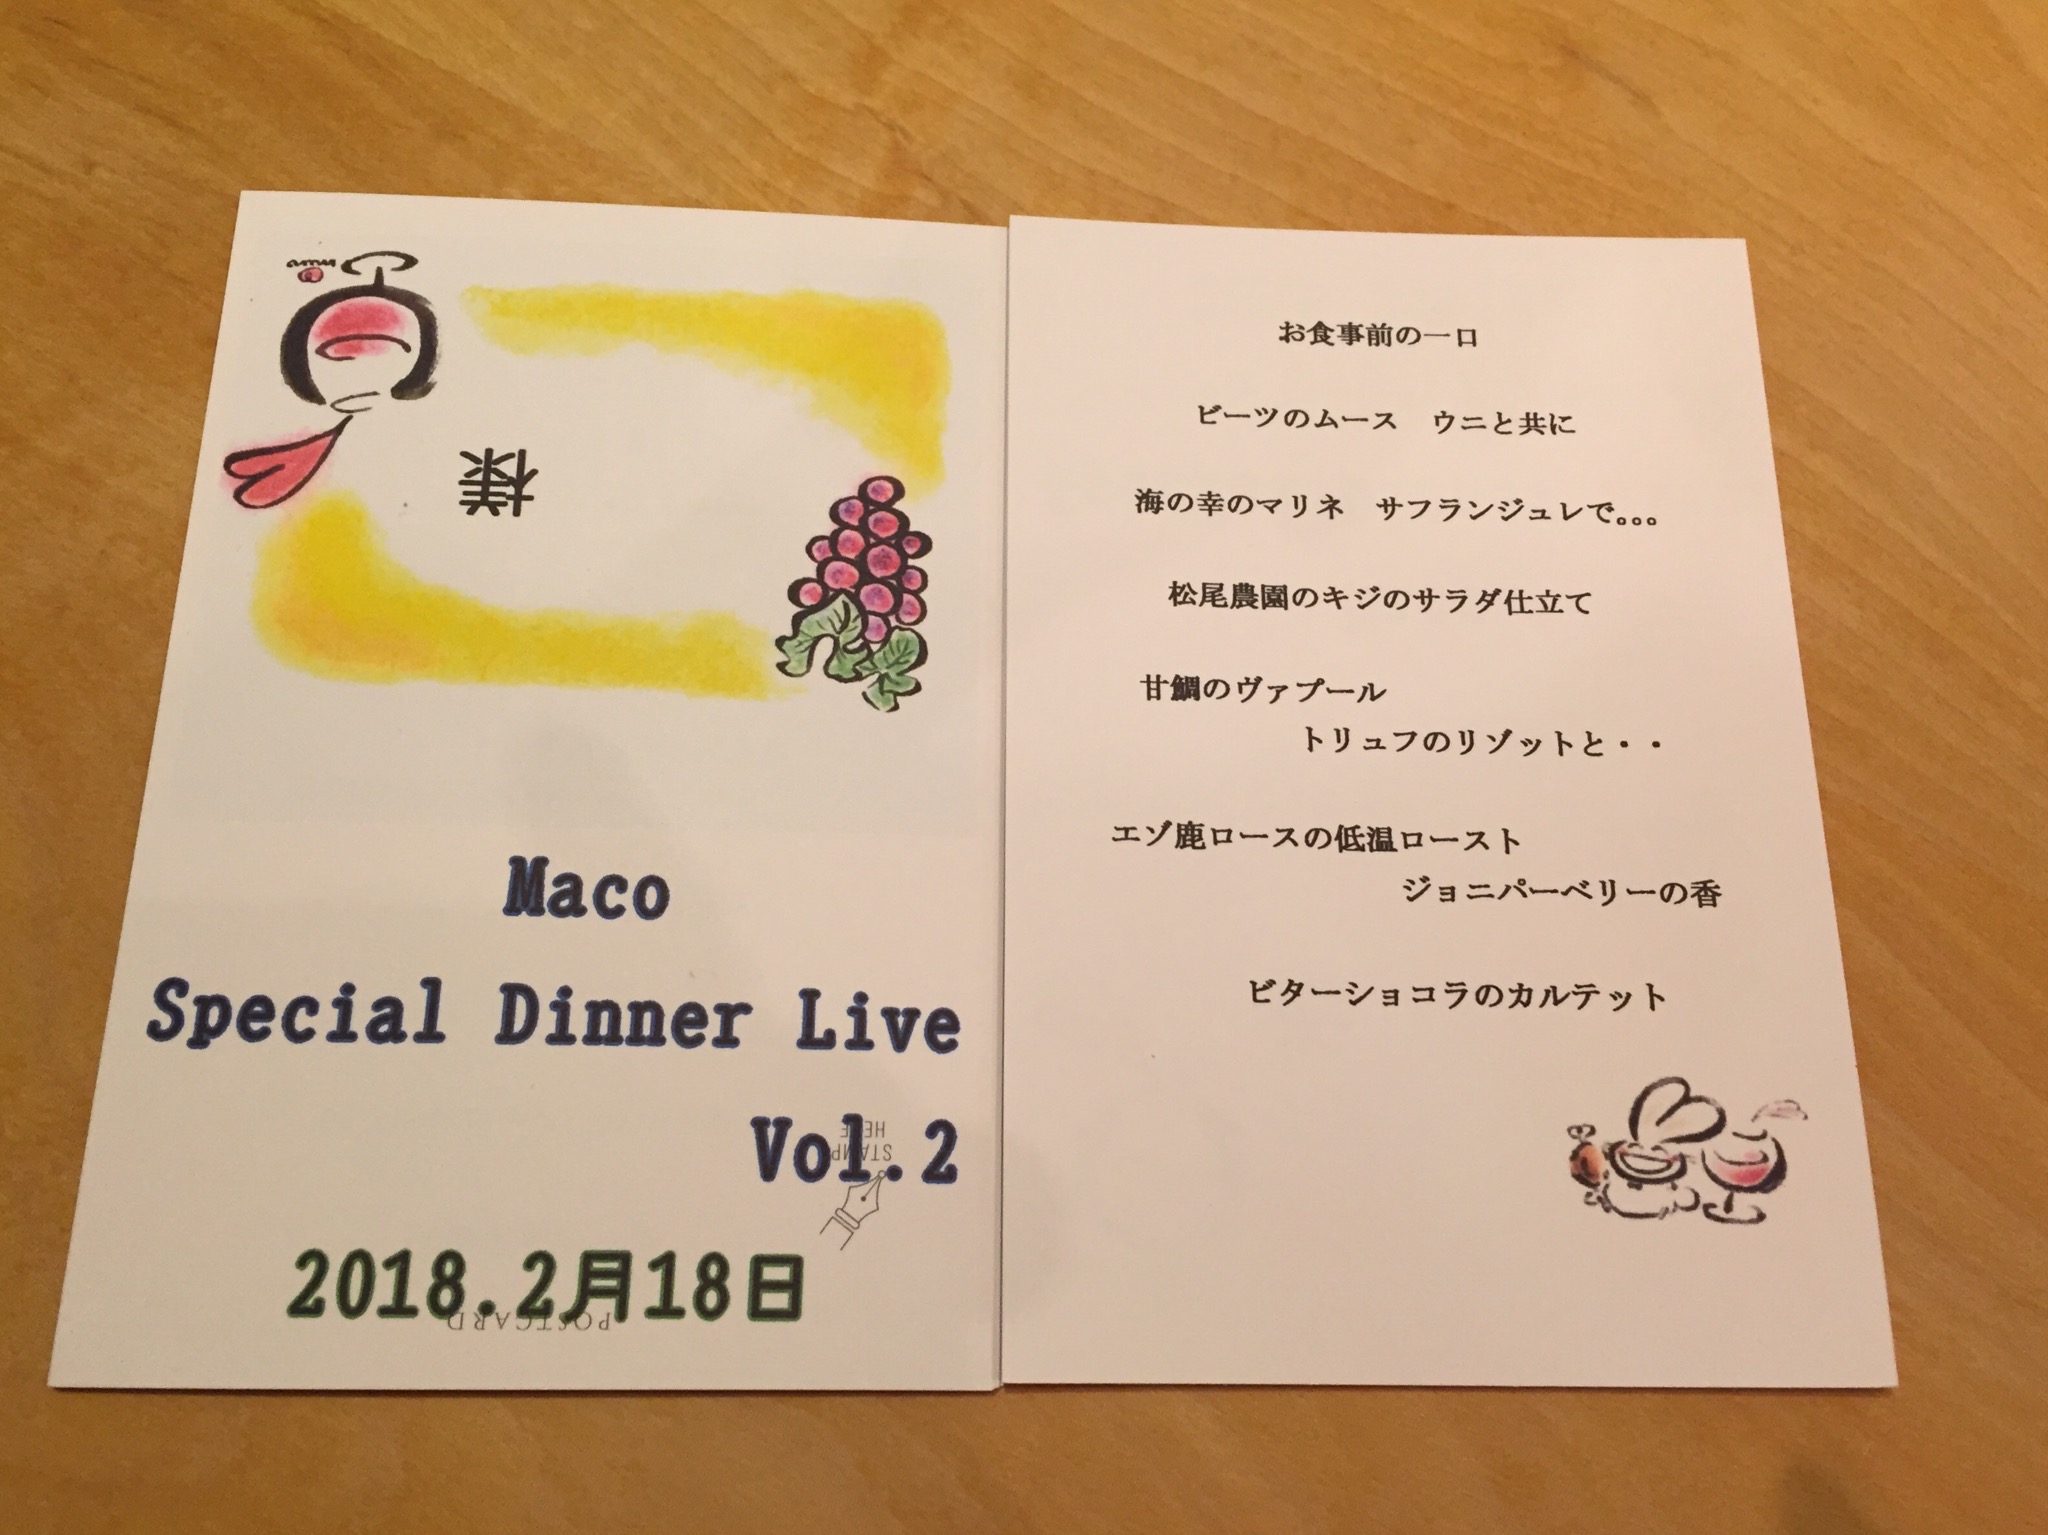 様
Maco
Special Dinner Live
Vol.2
STAMP
HERE
2018.2月18日
POSTCARD
お食事前の一口
ビーツのムース　ウニと共に
海の幸のマリネ　サフランジュレで。。。
松尾農園のキジのサラダ仕立て
甘鯛のヴァプール
トリュフのリゾットと・・
エゾ鹿ロースの低温ロースト
ジョニパーベリーの香
ビターショコラのカルテット